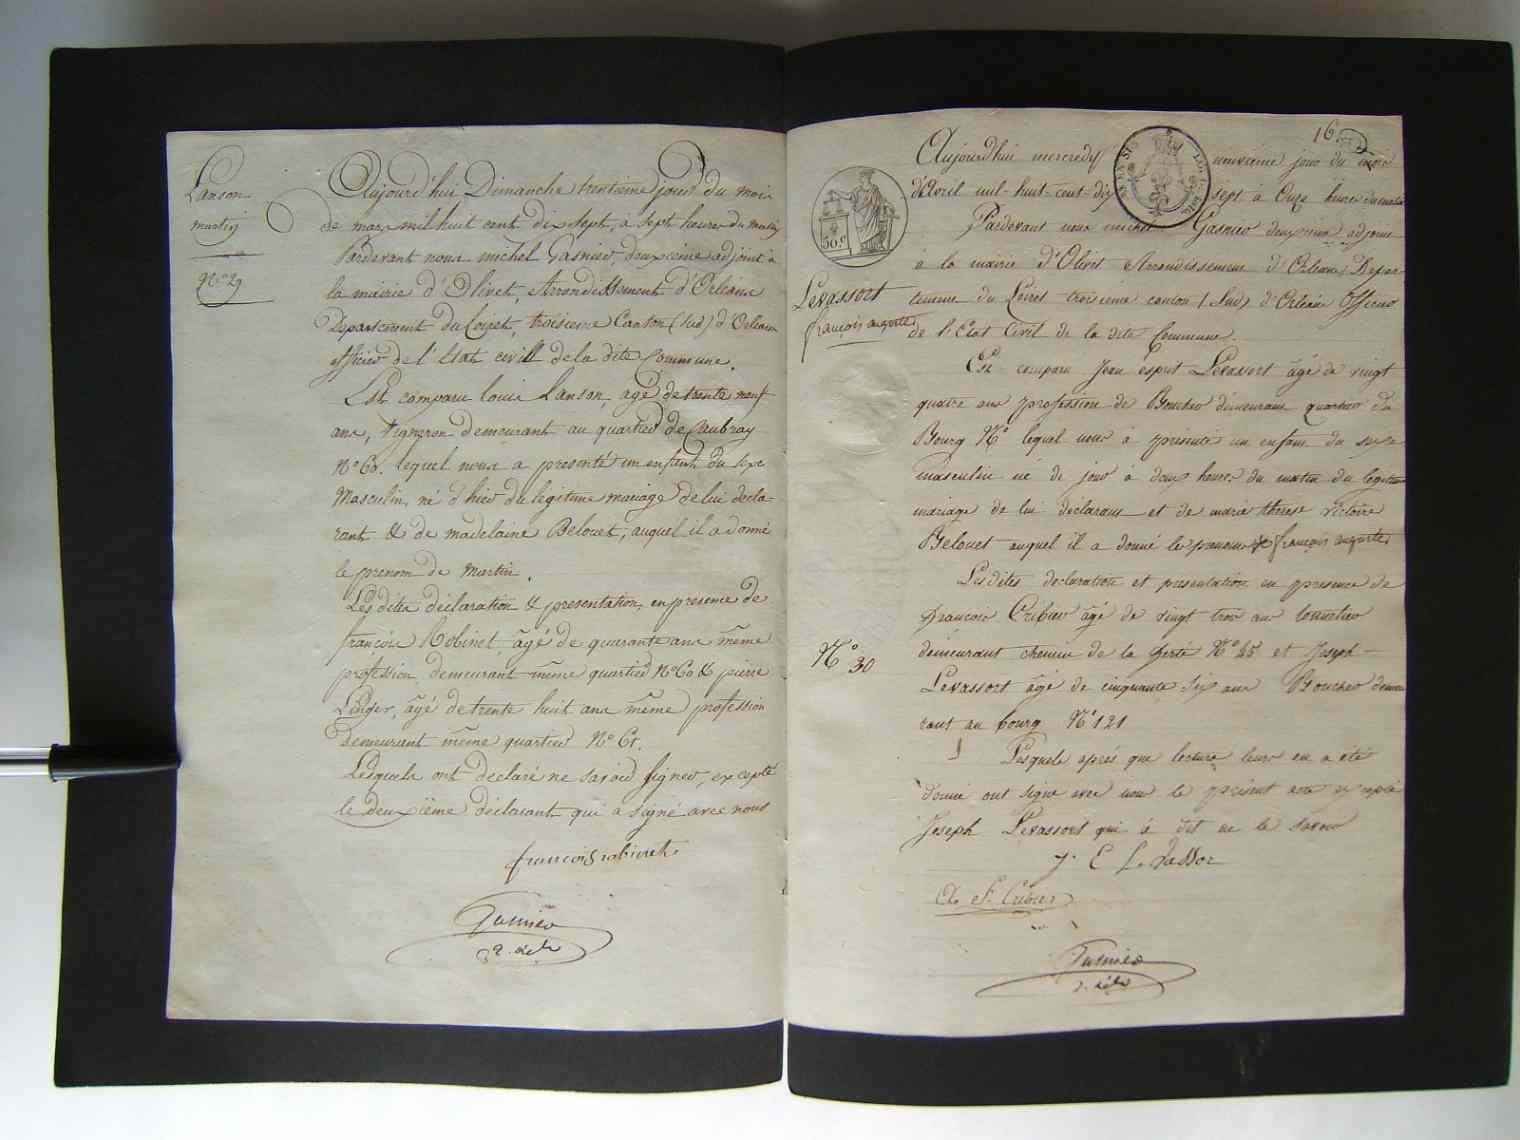 Lanson
martin
N° 29
Aujourd'hui Dimanche trentieme jour du mois
de mars mil huit cent dix sept, à sept heures du matin
Pardevant nous michel Gasnier, deuxième adjoint à
la mairie d'Olivet, Arrondissement d'Orléans
Département du Loiret, troisieme Canton (sud) d'Orleans
officier de l'Etat civill de la dite Commune.
Est comparu louis Lanson, agé de trente neuf
ans, vigneron demeurant au quartier de Caubray
N° 60. lequel nous a presenté un enfant du sexe
Masculin, né d'hier du legitime mariage de lui decla-
rant & de madelaine Belouet, auquel il a donné
le prenom de Martin.
Les dites déclaration & presentation, en presence de
françois Robinet, âgé de quarante ans même
profession, demeurant même quartier N° 60 & pierre
Linger, âgé de trente huit ans même profession
demeurant même quartier N° 61.
Lesquels ont declaré ne savoir signer, excepté
le deuxième déclarant qui a signé avec nous
francois robinet
Gasnier
2. adt
16
50 c
Levassort
françois auguste
N° 30
Aujourdhui mercredy neuvieme jour du mois
d'Avril mil-huit-cent-dix sept à Onze heures du matin
Pardevant nous michel Gasnier deuxieme adjoint
à la mairie d'Olivet Arrondissement d'Orléans, Depar-
tement du Loiret troisième canton (Sud) d'Orleans Officier
de l'Etat Civil de la dite Commune.
Est comparu Jean esprit Levassort âgé de vingt
quatre ans profession de Boucher demeurant quartier du
Bourg N° lequel nous à présenté un enfant du sexe
masculin né de jour à deux heures du matin du legitime
mariage de lui déclarant et de marie thérese victoire
Belouet auquel il a donné les prenoms de françois auguste
Les dites declaration et presentation en presence de
françois Cribier âgé de vingt trois ans tonnelier
demeurant chemin de la ferté N° 45 et Joseph
Levassort âgé de cinquante six ans Boucher demeu
rant au bourg N° 121
Lesquels après que lecture leur en a été
donné ont signé avec nous le présent acte excepté
Joseph Levassort qui à dit ne le savoir
J. E Le Vassor
F. Cribier
Gasnier
2. adt